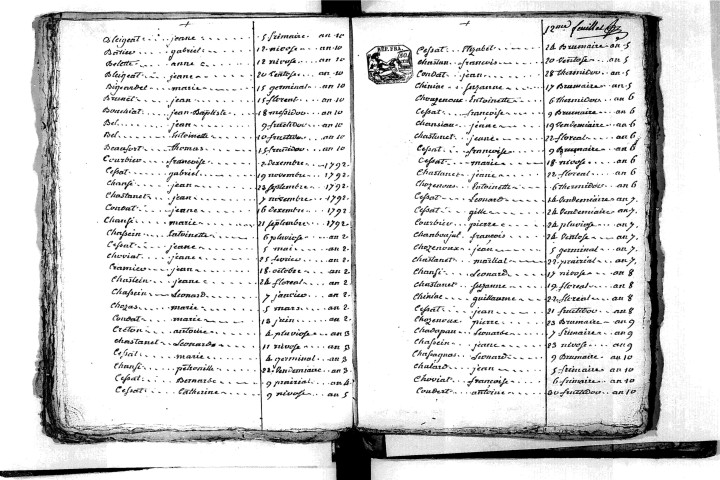 Bleigeat jeane 5 frimaire an 10
Batier gabriel 12 nivose an 10
Belette anne 12 nivose an 10
Bleigeat jeane 20 Ventose an 10
Bigeardel marie 15 germinal an 10
Brunet jean 15 floreal an 10
Bouchiat jean-Baptiste 18 messidor an 10
Bel jean 9 fructidor an 10
Bel Antoinette 10 fructidor an 10
Beaufort thomas 15 fructidor an 10
Courbier francoise 2 decembre 1792
Cessat gabriel 19 novembre 1792
Chansi jean 23 septembre 1792
Chastanet jean 7 novembre 1792
Condat jeane 16 decembre 1792
Chansi marie 21 septembre 1792
Chassein antoinette 6 pluviose an 2
Cessat jeane 5 mai an 2
Choviat jeane 25 fevrier an 2
Cramier jean 18 octobre an 2
Chastein jeane 24 floreal an 2
Chassein Leonard 7 janvier an 2
Chozas marie 5 mars an 2
Condat marie 13 juin an 2
Croton antoine 4 pluviose an 3
Chastanet Leonarde 11 nivose an 3
Cessat marie 4 germinal an 3
Chansi petronille 22 Vendemiaire an 3
Cessat Bernarde 9 prairial an 4
Cessat Catherine 9 nivose an 5
12me feuillet
REP. FRA.
Cessat Elizabet 24 Brumaire an 5
Chastan francois 20 Ventose an 5
Condat jean 28 thermidor an 5
Chiniac Suzanne 17 Brumaire an 5
Chouzenoux Antoinette 6 thermidor an 6
Cessat francoise 9 Brumaire an 6
Chansiane jeane 19 Vendemiaire an 6
Chastanet jeane 22 floreal an 6
Cessat francoise 9 brumaire an 6
Cessat marie 18 nivose an 6
Chastanet jeane 22 floreal an 6
Chozenoux Antoinette 6 thermidor an 6
Cessat Leonard 14 Vendemiaire an 7
Cessat gille 24 Vendemiaire an 7
Courbier pierre 24 pluviose an 7
Chanboujal francois 24 Ventose an 7
Chozenoux jean 5 germinal an 7
Chastanet martial 22 prairial an 7
Chansi Leonard 17 nivose an 8
Chastanet Suzanne 19 floreal an 8
Chiniac guillaume 22 floreal an 8
Cessat jean 21 fructidor an 8
Chozenoux pierre 23 Brumaire an 9
Chadapan Leonarde 7 frimaire an 9
Chassein jeane 23 nivose an 9
Chassagnas Leonard 9 Brumaire an 10
Chalard jean 5 frimaire an 10
Choviat francoise 6 frimaire an 10
Coudert antoine 30 fructidor an 10